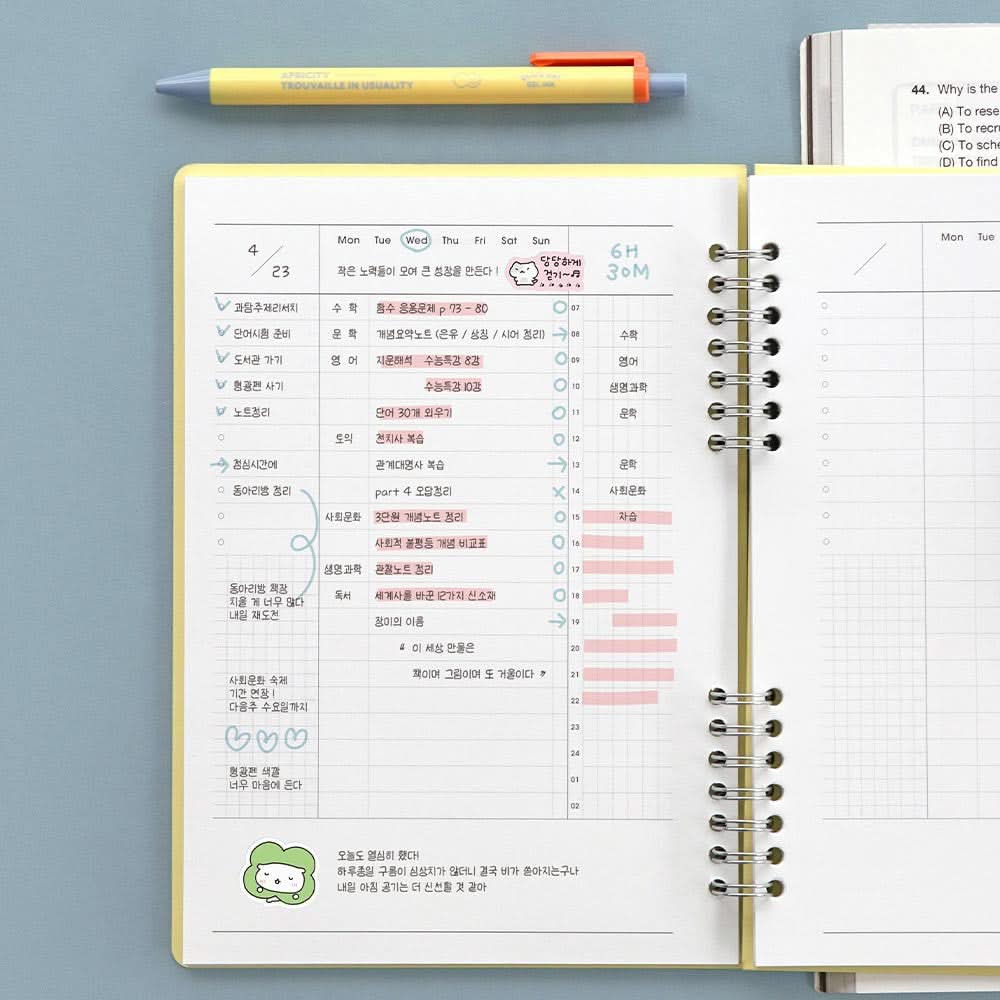 AFRICITY
TROUVAILLE IN USUALITY
44. Why is the
(A) To rese
(B) To recru
(C) To sche
(D) To find
4 / 23
Mon Tue Wed Thu Fri Sat Sun
작은 노력들이 모여 큰 성장을 만든다!
당당하게
걷기~♬
6H
30M
Mon Tue
과탐주제리서치 수 학 함수 응용문제 p 73 - 80 07
단어시험 준비 문 학 개념요약노트 (은유 / 상징 / 시어 정리) 08 수학
도서관 가기 영 어 지문해석 수능특강 8강 09 영어
형광펜 사기 수능특강 10강 10 생명과학
노트정리 단어 30개 외우기 11 문학
토익 전치사 복습 12
점심시간에 관계대명사 복습 13 문학
동아리방 정리 part 4 오답정리 X 14 사회문화
사회문화 3단원 개념노트 정리 15 자습
사회적 불평등 개념 비교표 16
생명과학 관찰노트 정리 17
독서 세계사를 바꾼 12가지 신소재 18
장미의 이름 19
동아리방 책장
치울 게 너무 많다
내일 재도전
" 이 세상 만물은 20
책이며 그림이며 또 거울이다 " 21
사회문화 숙제
기간 연장!
다음주 수요일까지
22
23
24
형광펜 색깔
너무 마음에 든다
01
02
오늘도 열심히 했다!
하루종일 구름이 심상치가 않더니 결국 비가 쏟아지는구나
내일 아침 공기는 더 신선할 것 같아